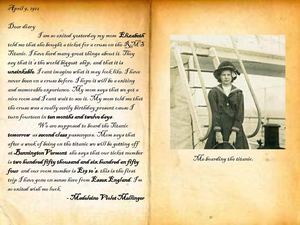 April 9, 1912
Dear diary
I am so exited yesterday my mom Elizabeth
told me that she bought a ticket for a cruse on the RMS
Titanic. I have herd many great things about it. They
say that it's the world biggest ship, and that it is
unsinkable. I cant imagine what it may look like. I have
never been on a cruse before. I hope it will be a exiting
and memorable experience. My mom says that we got a
nice room and I cant wait to see it. My mom told me that
the cruse was a really early birthday present cause I
turn fourteen in ten months and twelve days.
We are supposed to board the Titanic
tomorrow as second class passengers. Mom says that
after a week of being on the titanic we will be getting off
at Bennington Vermont she says that our ticket number
is two hundred fifty thousand and six hundred an fifty
four and our room number is this is the first
trip I have gone on sense from Essex England. I'm
so exited wish me luck.
- Madeleine Violet Mellinger
Me boarding the titanic.